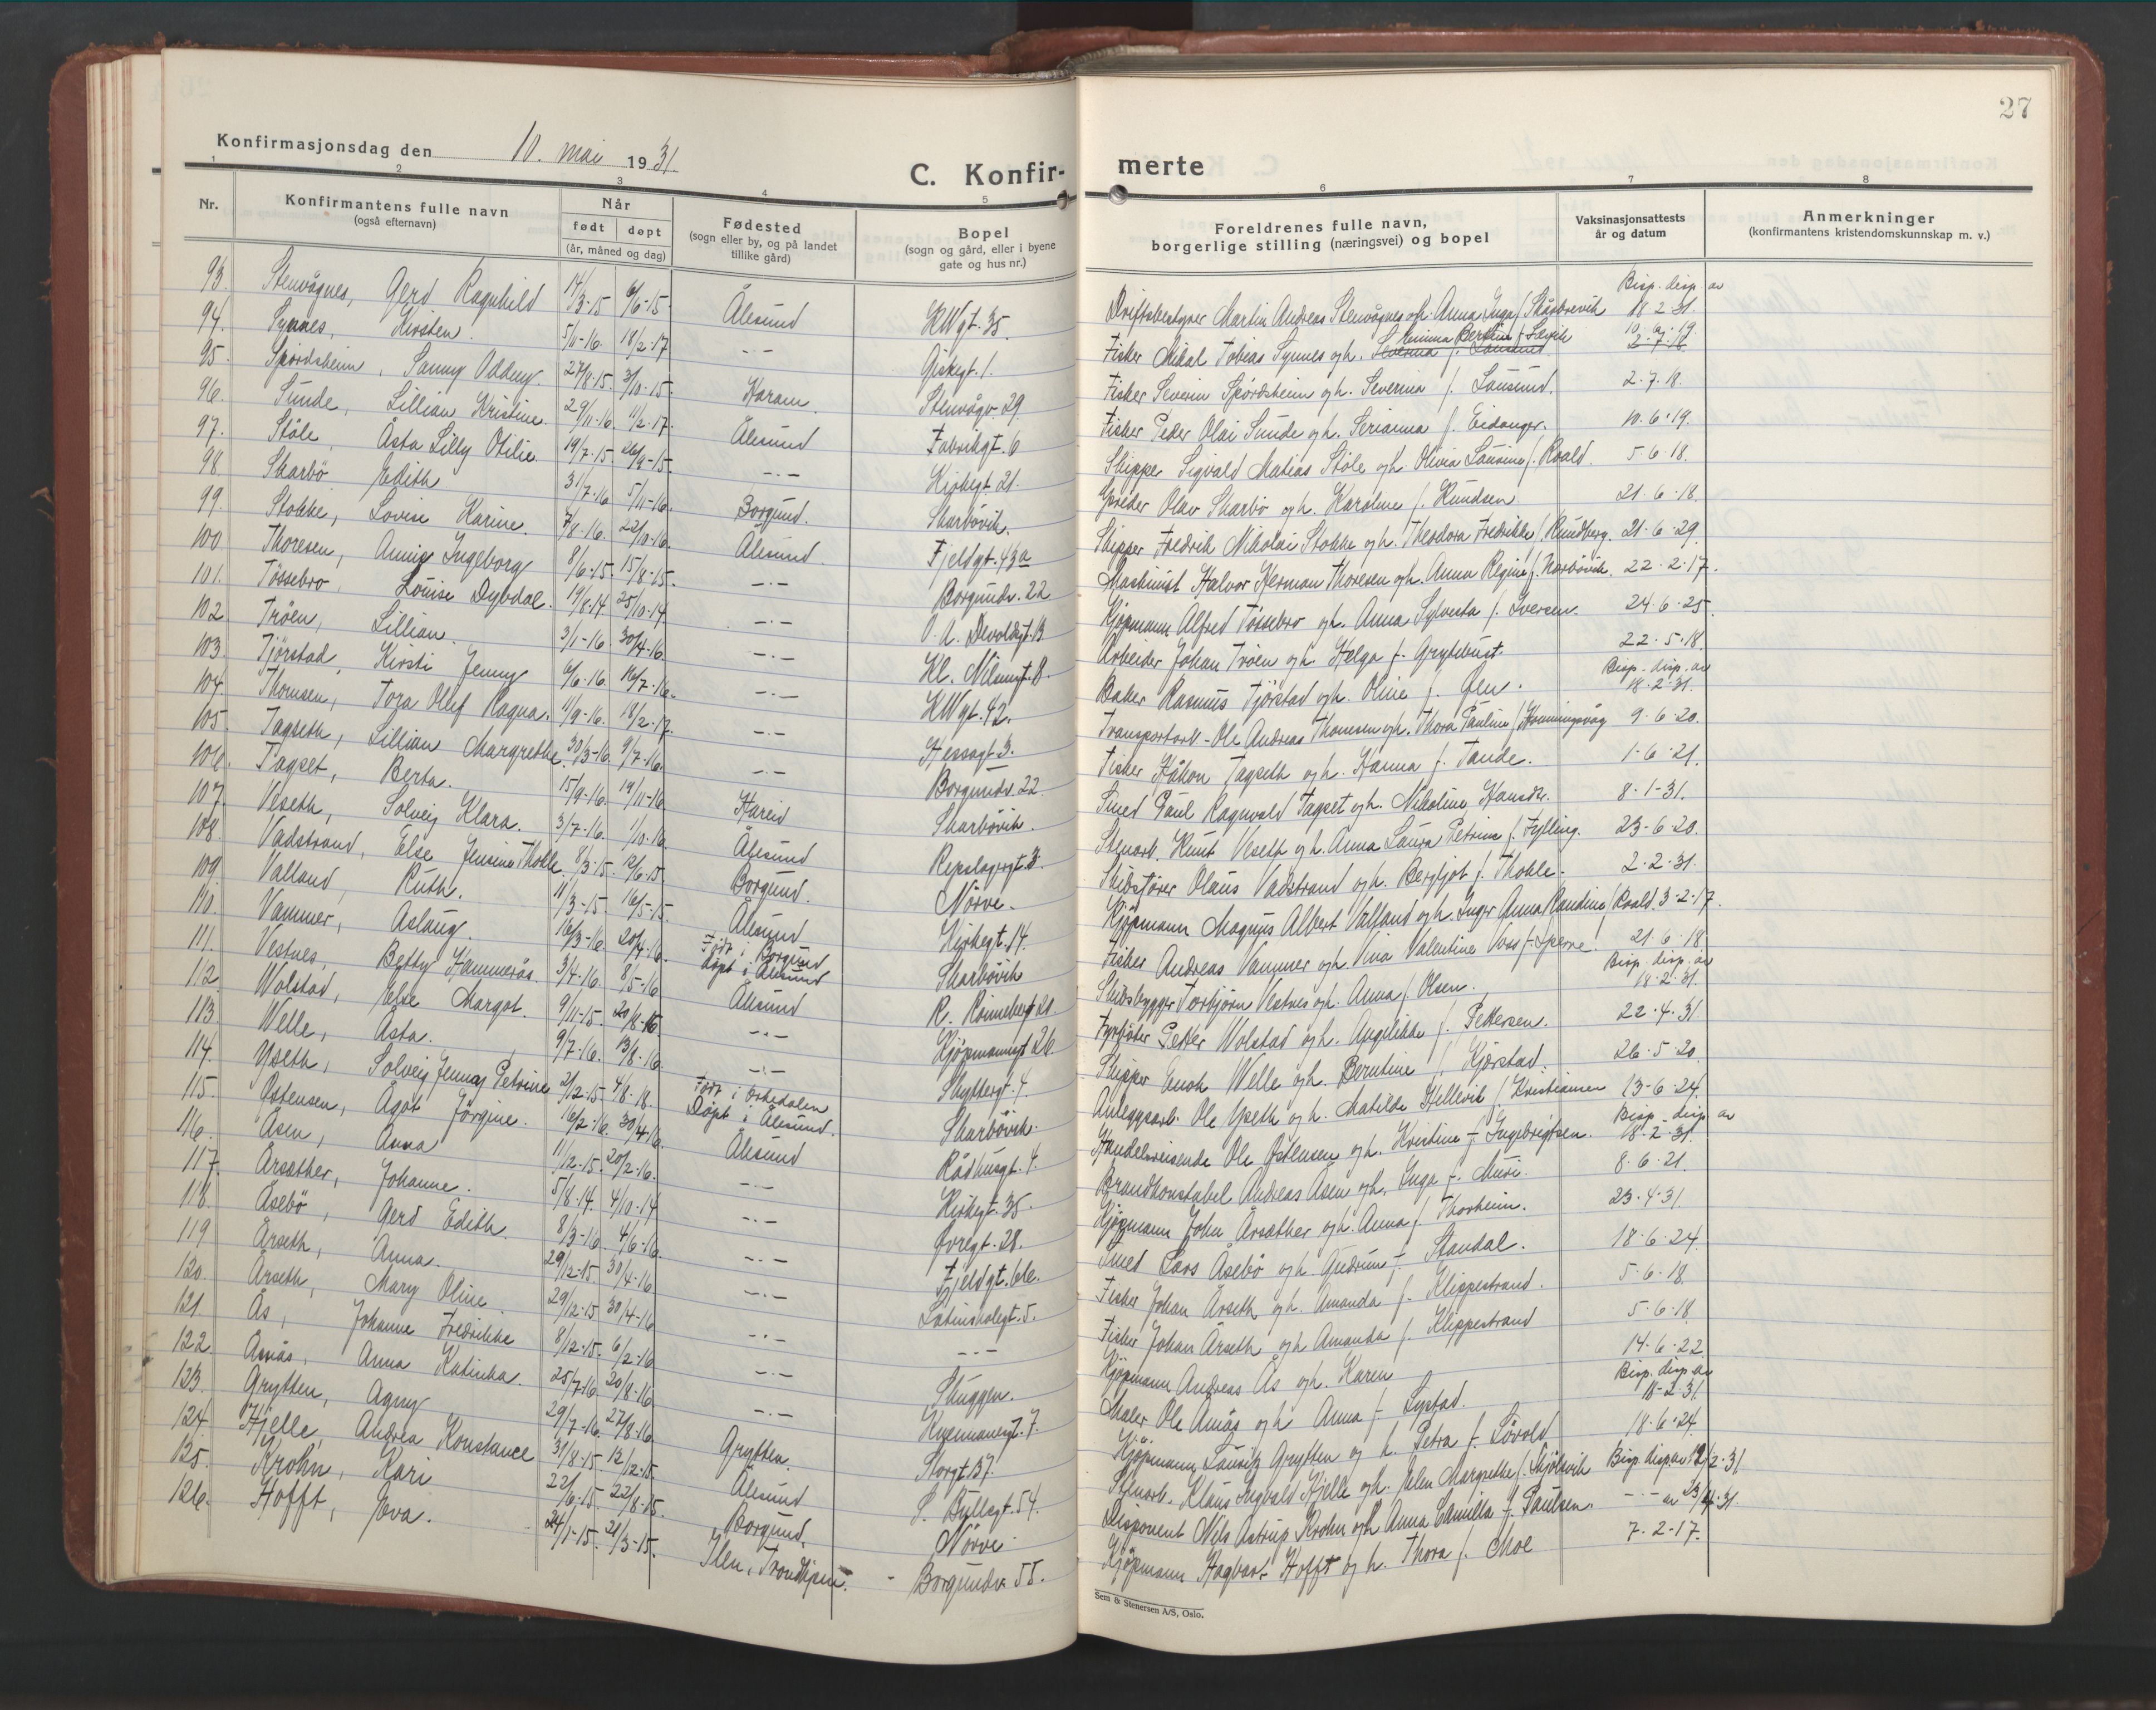 27
Konfirmasjonsdag den 10. mai 1931.
C. Konfir-
merte
1 2 3 4 5 6 7 8
Nr.
Konfirmantens fulle navn
(også efternavn)
Når
født døpt
(år, måned og dag)
Fødested
(sogn eller by, og på landet
tillike gård)
Bopel
(sogn og gård, eller i byene
gate og hus nr.)
Foreldrenes fulle navn,
borgerlige stilling (næringsvei) og bopel
Vaksinasjonsattests
år og datum
Anmerkninger
(konfirmantens kristendomskunnskap m. v.)
93. Stenvågnes, Gerd Ragnhild 14/3-15 6/6-15. Ålesund KWgt. 35. Driftsbestyrer Martin Andreas Stenvågnes og h. Anna Inga f. Bisp. disp. av 18.2.31.
94. Synnes, Kirsten. 5/11-16. 18/2-17 -"- Giskegt. 1. Fisker Mikal Tobias Synnes og h.
95. Spjørdsheim, Sanny Oddny. 27/8-15. 3/10-15. Haram. Stenvågv. 29. Fisker Severin Spjørdsheim og h. Severina f. Lausund. 2.7.18.
96. Sunde, Lillian Kristine. 29/11-16. 11/2-17. Ålesund Fabrikgt. 6 Fisker Peder Olai Sunde og h. Serianna f. Eidanger. 10.6.19.
97. Støle, Åsta Lilly Otilie. 19/7-15. 26/9-15. -"- Kirkegt. 21. Skipper Sigvald Matias Støle og h. Olivia Laurine f. Roald. 5.6.18.
98. Skarbö Edith 31/7-16. 5/11-16. Borgund. Skarbövik. Olav Skarbö og h. Karoline f. Knudsen 21.6.18.
99. Stokke, Lovise Karine. 7/8-16. 22/10-16. Ålesund. Fjeldgt. 43a Skipper Fredrik Nikolai Stokke og h. Theodora Fredrikke f. Rundberg. 21.6.29.
100 Thoresen, Annie Ingeborg 8/6-15. 15/8-15. -"- Borgundv. 22 Maskinist Halvor Herman Thoresen og h. Anna Regine f. 22.2.17.
101. Tössebro, Louise Dybdal. 19/8-14. 25/10-14 -"- O. A. Devoldsgt. 13 Kjøpmann Alfred Tössebro og h. Anna Sylvesta f. Iversen. 24.6.25.
102. Tröen, Lillian. 3/1-16. 30/4-16. -"- Kl. Nilsengt. 8. Arbeider Johan Tröen og h. Helga f. Grytebust. 22.5.18.
103. Tjörstad, Kirsti Jenny 6/6-16. 16/7-16. -"- KWgt. 42. Baker Rasmus Tjörstad og h. Oline f. Bisp. disp. av 18.2.31.
104. Thomsen, Tora Oluf Ragna. 11/9-16. 18/2-17. -"- Hessagt. 3. Transportarb. Ole Andreas Thomsen og h. Thora Pauline f. Honningsvåg 9.6.20.
105. Tagseth, Lillian Margrethe. 30/3-16. 9/7-16. -"- Borgundv. 22. Fisker Håkon Tagseth og h. Hanna f. Tande. 1.6.21.
106. Tagset, Berta. 15/9-16. 19/11-16 Hareid Skarbövik. Smed Paul Ragnvald Tagset og h. Nikoline Hansdtr. 8.1-31.
107. Veseth, Solveig Klara. 3/7-16. 1/10-16. Ålesund Repslagergt. 3. Stenarb. Knut Veseth og h. Anna Laura Petrine f. Fylling. 23.6.20.
108 Vadstrand, Else Jensine Tholle 8/3-15. 12/6-15 Borgund. Nörve. Skibsfører Olaus Vadstrand og h. Bergljot f. Tholle. 2.2.31.
109. Valland, Ruth. 11/3-15. 16/5-15. Ålesund Kirkegt. 14. Kjøpmann Magnus Albert Valland og h. Inger Anna Randine f. Roald. 3-2-17.
110. Vammer, Aslaug. 16/3-16. 20/4-16. Født i Borgund døpt i Ålesund Skarbövik Fisker Andreas Vammer og h. Vina Valentine 21.6.18
111. Vestnes, Betty Hammerås. 3/4-16. 8/5-16 Ålesund R. Rönneberg 20. Skibsbygger Torbjörn Vestnes og h. Anna f. Olsen. Bisp. disp. av 18.2.31.
112. Wolstad, Else Margot. 9/11-15. 20/8-16. -"- Kjöpmannsgt 26. Fyrböter Petter Wolstad og h. Angelikke f. Pettersen. 22.4.31
113. Welle, Åsta. 9/7-16. 13/8-16. -"- Skytterg. 4. Skipper Enok Welle og h. Berntine f. Kjörstad. 26.5.20.
114. Yseth, Solveig Jenny Petrine 2/12-15. 4/8-18. Født i Orkedalen Döpt i Ålesund. Skarbövik. Anleggsarb. Ole Yseth og h. Matilde Hellevik f. Kristiansen 13-6-24.
115. Østensen, Ågot Jörgine. 16/2-16. 30/4-16. Ålesund Rådhusgt. 4. Handelsreisende Ole Østensen og h. Kristine f. Ingebrigtsen. Bisp. disp. av 18.2.31.
116. Åsen, Anna 11/12-15. 20/2-16. -"- Kirkegt. 35. Brandkonstabel Andreas Åsen og h. Inga f. Muri. 8.6.21.
117. Årsæther, Johanne. 5/8-14. 4/10-14 -"- Øvregt. 28. Kjøpmann John Årsæther og h. Anna f. Thorheim. 23.4.31
118. Åsebö, Gerd Edith. 8/3-16. 4/6-16. -"- Fjeldgt. 61e. Smed Lars Åsebö og h. Gudrun f. Standal. 18.6.24.
119 Årseth, Anna. 29/12-15. 30/4-16. -"- Latinskolegt. 5. Fisker Johan Årseth og h. Amanda f. Klippestrand. 5.6.18.
120. Årseth, Mary Oline. 29/12-15 30/4-16 -"- -"- Fisker Johan Årseth og h Amanda f. Klippestrand 5.6.18.
121. Ås, Johanne Fredrikke 8/12-15. 6/2-16 -"- Skuggen. Kjøpmann Andreas Ås og h. Karen 14.6.22
122 Åmås, Anna Katinka. 25/7-16 20/8-16 -"- Kvennavegt. 7. Maler Ole Åmås og h Anna f. Lystad. Bisp. disp. av 18-2-31.
123. Grytten, Agny 29/7-16. 27/8-16 Grytten. Storgt. 37. Kjøpmann Lauritz Grytten og h. Petra f. Lövold 18.6.24.
124. Hjelle, Andrea Konstance 31/8-15. 12/12-15. Ålesund S. Bullsgt. 54. Klaus Ingvald Hjelle og h. Elen Margrethe f. Bisp. disp. av 18/2-31.
125. Krohn, Kari 22/6-15. 22/8-15. Borgund. Nörve Disponent Nils Astrup Krohn og h Anna Camilla f. Paulsen. -"- av 23/4-31.
126. Hofft, Eva. 24/1-15. 21/3-15. Ilen, Trondhjem. Borgundv. 55. Kjøpmann Hagbart Hofft og h. Thora f. Moe 7.2-17.
Sem & Stenersen A/S, Oslo.